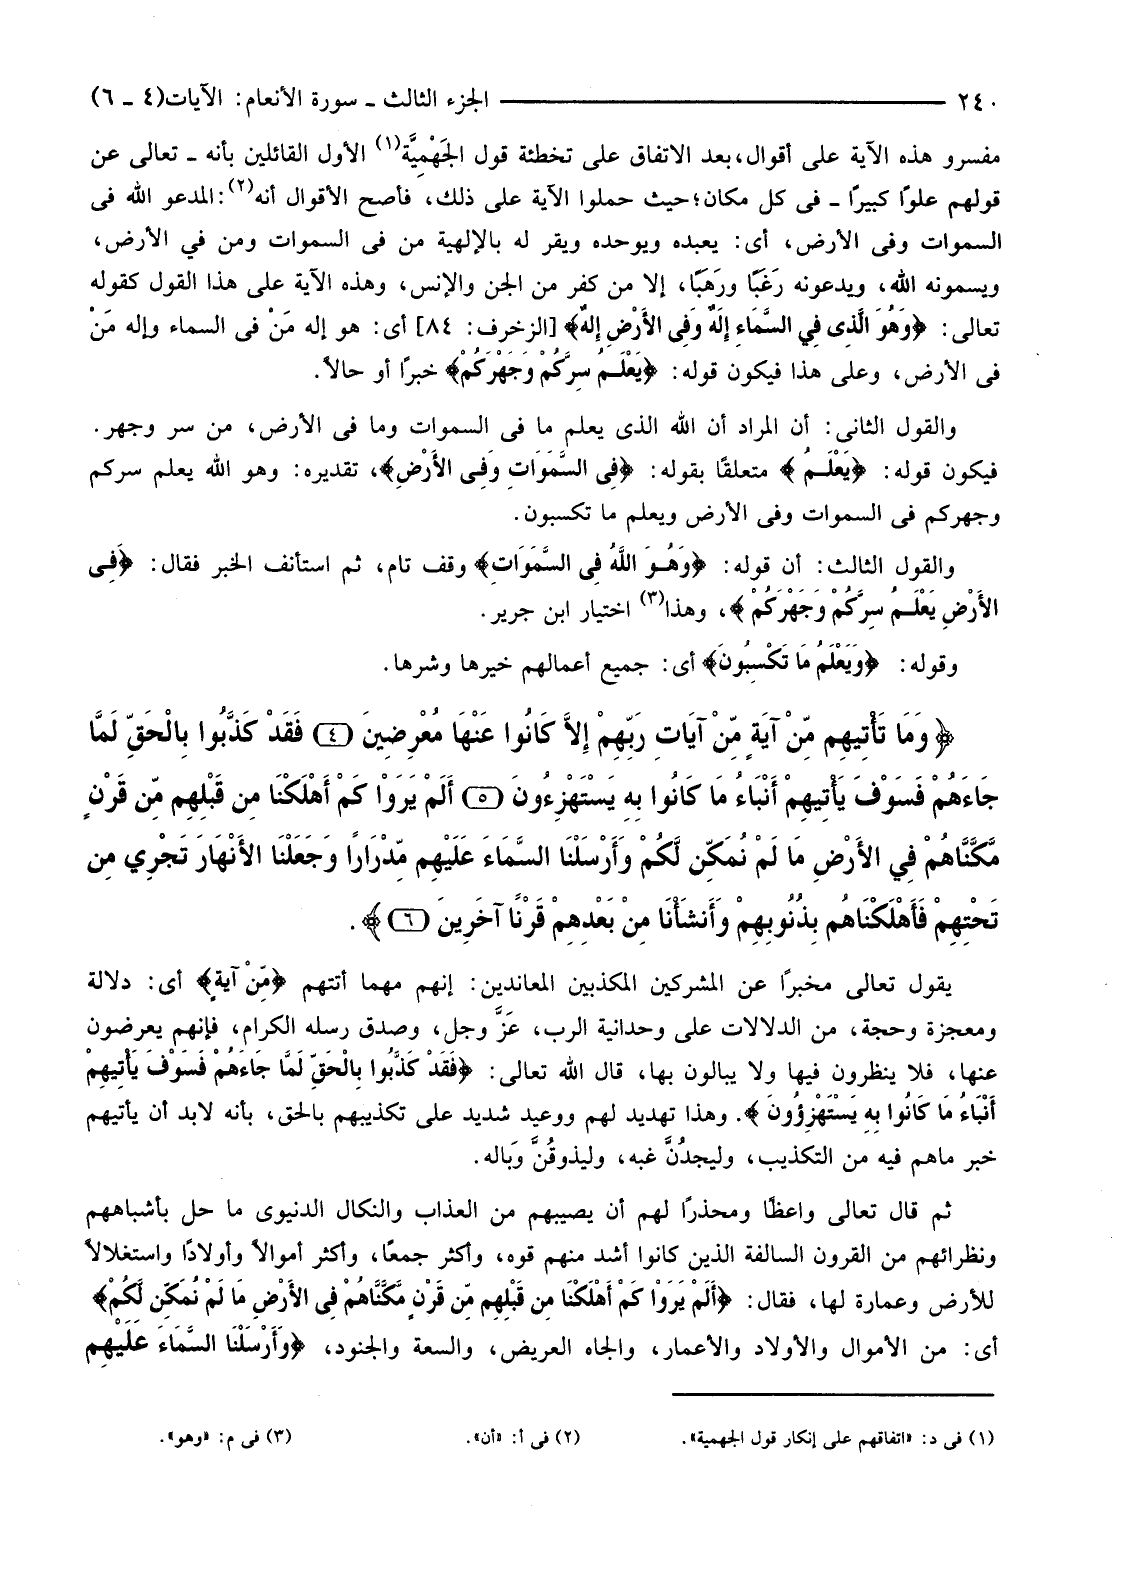 ٢٤٠ ــــــــــ الجزء الثالث ـ سورة الأنعام: الآيات(٤ ـ ٦)
مفسرو هذه الآية على أقوال،بعد الاتفاق على تخطئة قول الجَهْمِيَّة(١) الأول القائلين بأنه ـ تعالى عن
قولهم علوًا كبيرًا ـ فى كل مكان؛حيث حملوا الآية على ذلك، فأصح الأقوال أنه(٢):المدعو الله فى
السموات وفى الأرض، أى: يعبده ويوحده ويقر له بالإلهية من فى السموات ومن في الأرض،
ويسمونه الله، ويدعونه رَغَبًا ورَهَبًا، إلا من كفر من الجن والإنس، وهذه الآية على هذا القول كقوله
تعالى: ﴿وَهُوَ الَّذِى فِي السَّمَاءِ إِلَهٌ وَفِى الأَرْضِ إِلهٌ﴾ [الزخرف: ٨٤] أى: هو إله مَنْ فى السماء وإله مَنْ
فى الأرض، وعلى هذا فيكون قوله: ﴿يَعْلَمُ سِرَّكُمْ وَجَهْرَكُمْ﴾ خبرًا أو حالاً.
والقول الثانى: أن المراد أن الله الذى يعلم ما فى السموات وما فى الأرض، من سر وجهر.
فيكون قوله: ﴿يَعْلَمُ﴾ متعلقًا بقوله: ﴿فِى السَّمَوَاتِ وَفِى الأَرْضِ﴾، تقديره: وهو الله يعلم سركم
وجهركم فى السموات وفى الأرض ويعلم ما تكسبون.
والقول الثالث: أن قوله: ﴿وَهُوَ اللَّهُ فِى السَّمَوَاتِ﴾ وقف تام، ثم استأنف الخبر فقال: ﴿وَفِى
الأَرْضِ يَعْلَمُ سِرَّكُمْ وَجَهْرَكُمْ﴾، وهذا(٣) اختيار ابن جرير.
وقوله: ﴿وَيَعْلَمُ مَا تَكْسِبُونَ﴾ أى: جميع أعمالهم خيرها وشرها.
﴿وَمَا تَأْتِيهِم مِّنْ آيَةٍ مِّنْ آيَاتِ رَبِّهِمْ إِلاَّ كَانُوا عَنْهَا مُعْرِضِينَ (٤) فَقَدْ كَذَّبُوا بِالْحَقِّ لَمَّا
جَاءَهُمْ فَسَوْفَ يَأْتِيهِمْ أَنْبَاءُ مَا كَانُوا بِهِ يَسْتَهْزِءُونَ (٥) أَلَمْ يَرَوْا كَمْ أَهْلَكْنَا مِن قَبْلِهِم مِّن قَرْنٍ
مَّكَّنَّاهُمْ فِي الأَرْضِ مَا لَمْ نُمَكِّن لَّكُمْ وَأَرْسَلْنَا السَّمَاءَ عَلَيْهِم مِّدْرَارًا وَجَعَلْنَا الأَنْهَارَ تَجْرِي مِن
تَحْتِهِمْ فَأَهْلَكْنَاهُم بِذُنُوبِهِمْ وَأَنشَأْنَا مِنْ بَعْدِهِمْ قَرْنًا آخَرِينَ (٦)﴾.
يقول تعالى مخبرًا عن المشركين المكذبين المعاندين: إنهم مهما أتتهم ﴿مِّنْ آيَةٍ﴾ أى: دلالة
ومعجزة وحجة، من الدلالات على وحدانية الرب، عَزَّ وجل، وصدق رسله الكرام، فإنهم يعرضون
عنها، فلا ينظرون فيها ولا يبالون بها، قال الله تعالى: ﴿فَقَدْ كَذَّبُوا بِالْحَقِّ لَمَّا جَاءَهُمْ فَسَوْفَ يَأْتِيهِمْ
أَنْبَاءُ مَا كَانُوا بِهِ يَسْتَهْزِؤُونَ﴾. وهذا تهديد لهم ووعيد شديد على تكذيبهم بالحق، بأنه لابد أن يأتيهم
خبر ماهم فيه من التكذيب، وليجدُنَّ غبه، وليذوقُنَّ وَباله.
ثم قال تعالى واعظًا ومحذرًا لهم أن يصيبهم من العذاب والنكال الدنيوى ما حل بأشباههم
ونظرائهم من القرون السالفة الذين كانوا أشد منهم قوه، وأكثر جمعًا، وأكثر أموالاً وأولادًا واستغلالاً
للأرض وعمارة لها، فقال: ﴿أَلَمْ يَرَوْا كَمْ أَهْلَكْنَا مِن قَبْلِهِم مِّن قَرْنٍ مَّكَّنَّاهُمْ فِى الأَرْضِ مَا لَمْ نُمَكِّن لَّكُمْ﴾
أى: من الأموال والأولاد والأعمار، والجاه العريض، والسعة والجنود، ﴿وَأَرْسَلْنَا السَّمَاءَ عَلَيْهِم
(١) فى د: «اتفاقهم على إنكار قول الجهمية». (٢) فى أ: «أن». (٣) فى م: «وهو».